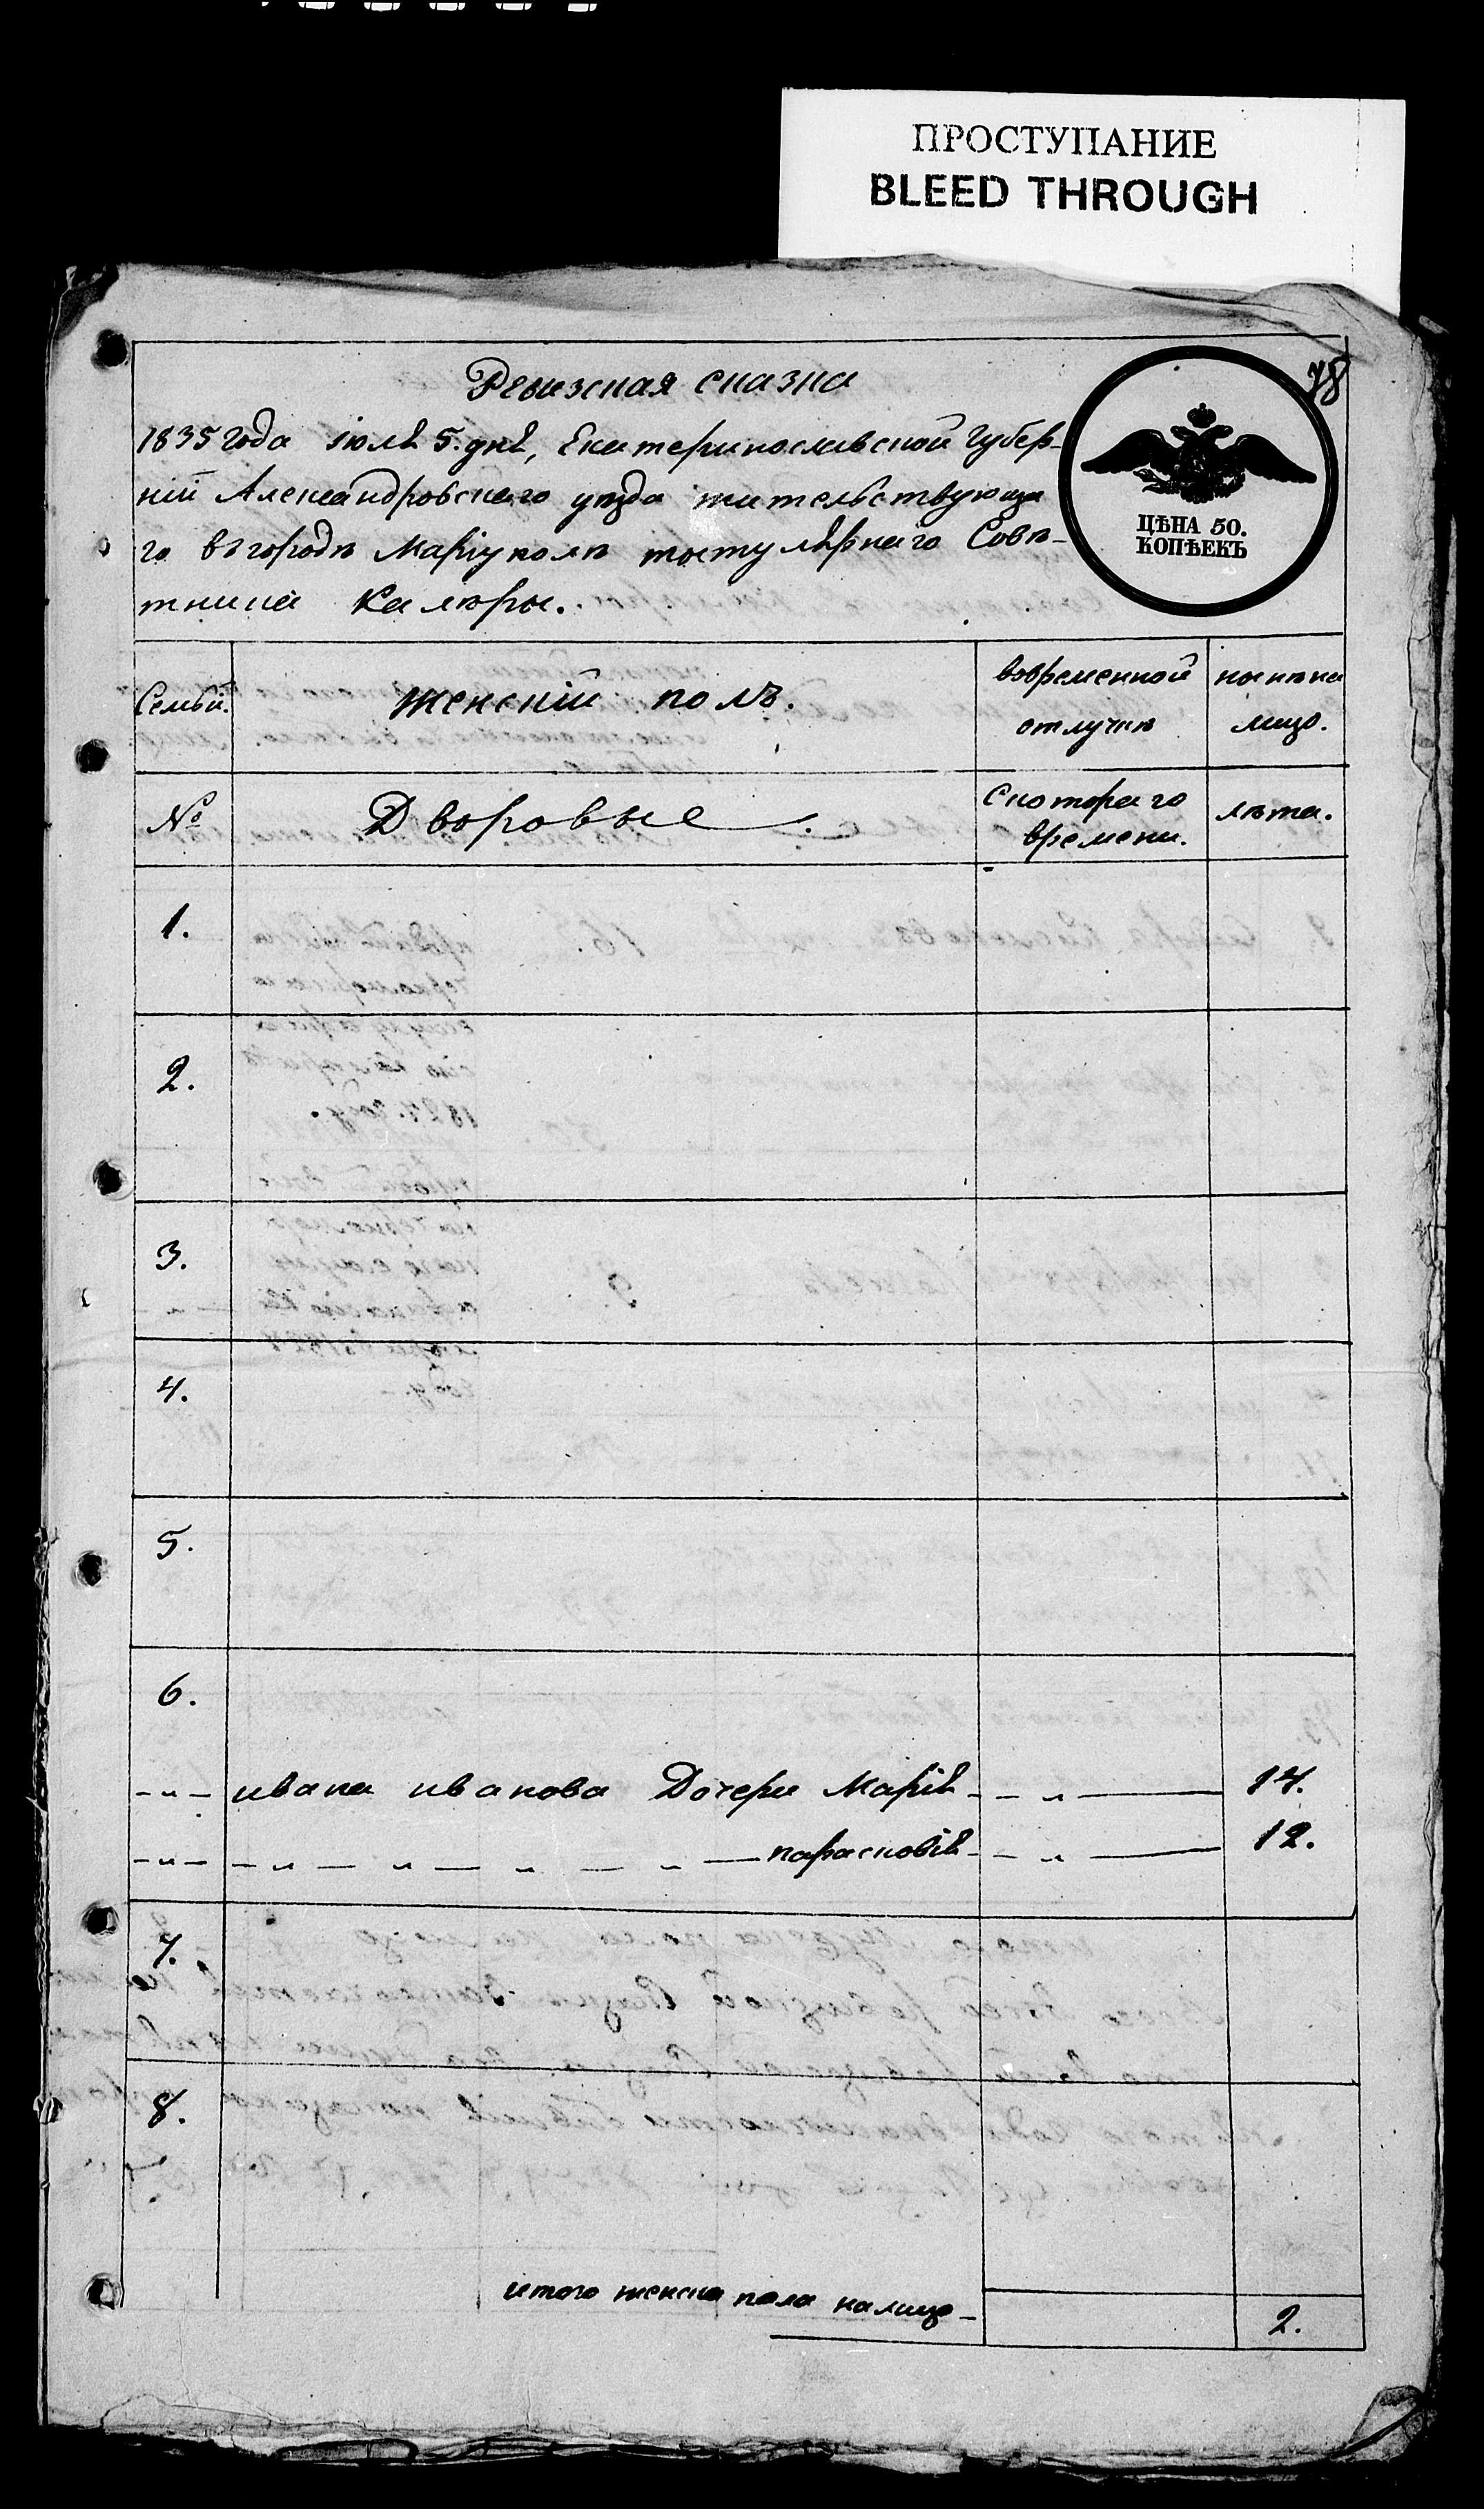 ПРОСТУПАНИЕ
BLEED THROUGH
78
Ревизская сказка
1835 года іюля 5. дня, Екатеринославской Губер-
ніи Александровскаго уѣзда жительствующа
го въ городѣ Маріуполѣ титулярнаго Совѣ-
тника Калѣры.
ЦѢНА 50.
КОПѢЕКЪ
Семьи. женскій полъ. вовременной отлучкѣ наыкка лицо.
№ Дворовые. Скотораго времени. лѣта.
1.
2.
3.
4.
5.
6.
ивана иванова Дочери Марія 14.
парасковія 12.
7.
8.
итого женска пола налицо 2.